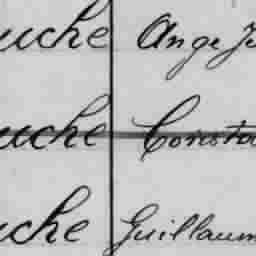 uche Ange Je
uche Consta
uche Guillaum